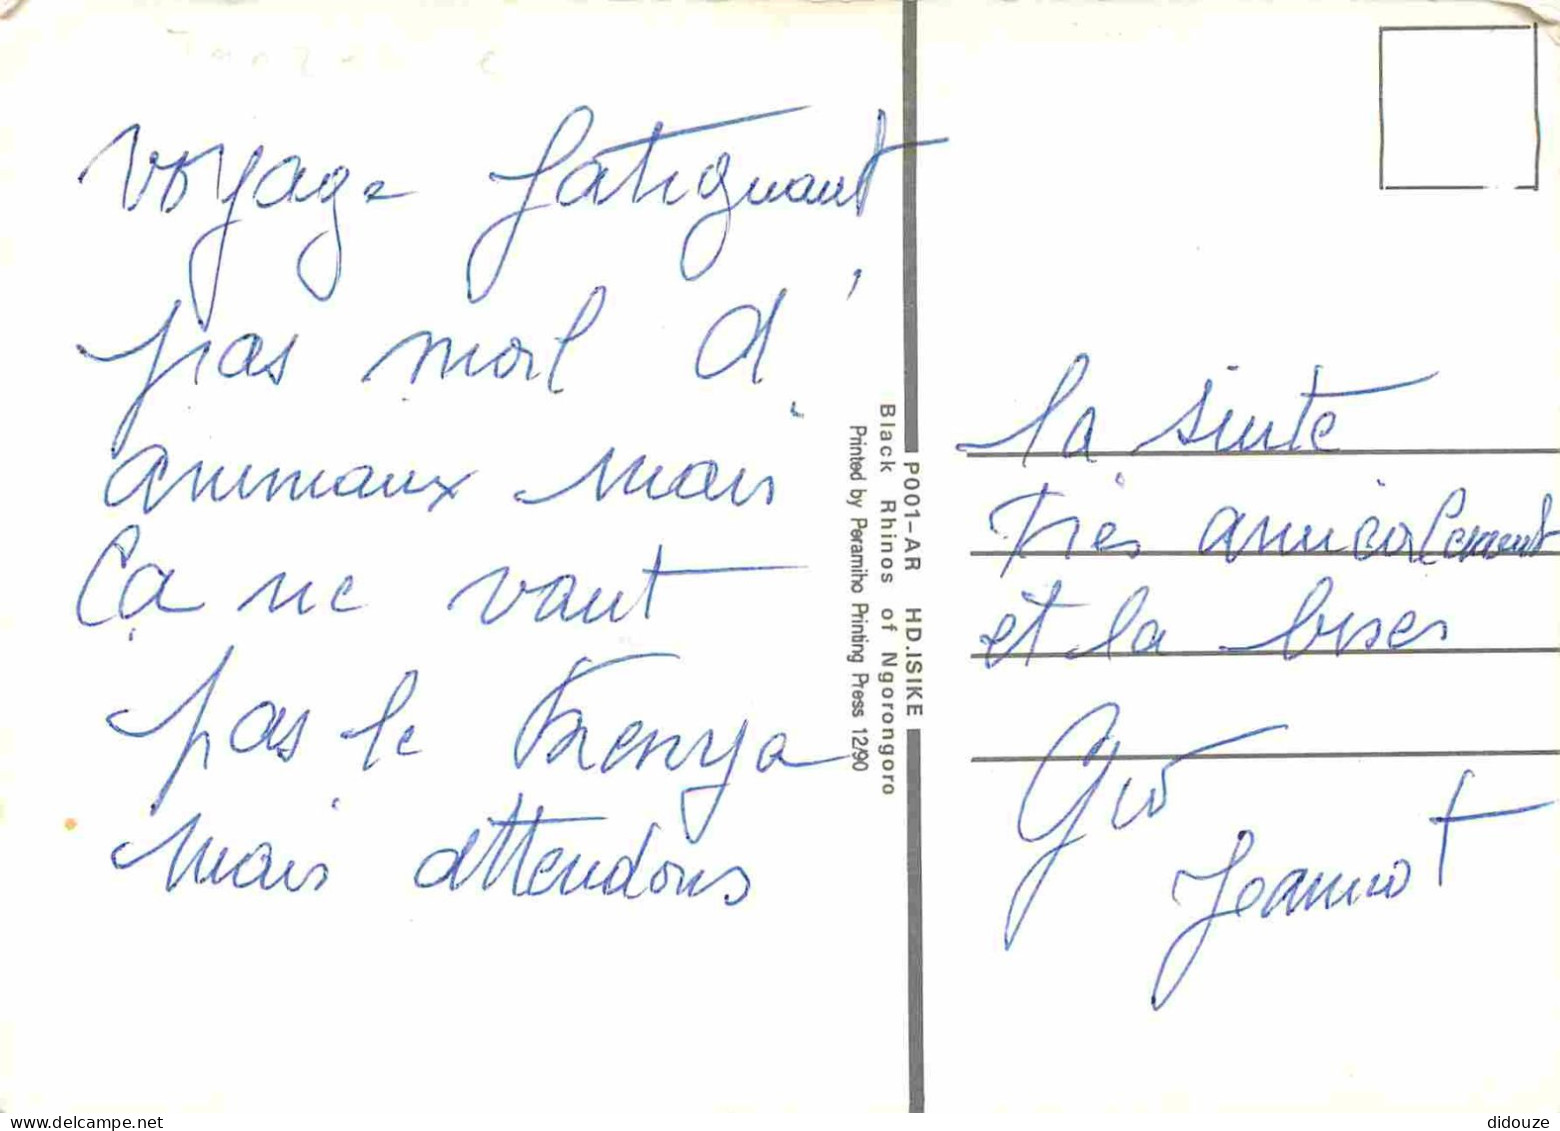 voyage fatiguant
pas mal d'
animaux mais
ça ne vaut
pas le Kenya
mais attendons
la suite
très amicalement
et la bises
Gio
Jeannot
P001-AR HD.ISIKE
Black Rhinos of Ngorongoro
Printed by Peramiho Printing Press 12/90
didouze